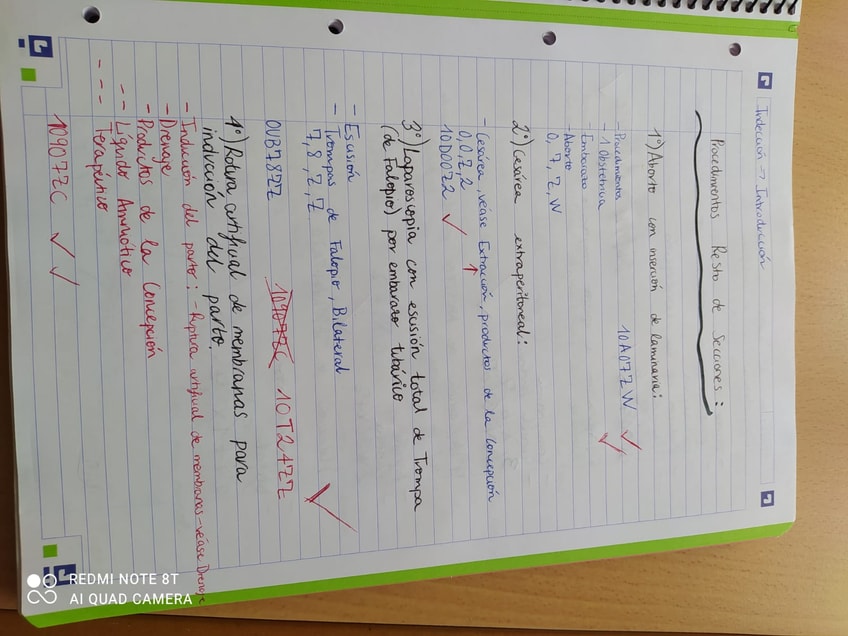 Inducción → Introducción
Procedimientos Resto de Secciones:
1º) Aborto con inserción de laminaria:
- Procedimientos
- 1 Obstetricia
- Embarazo
- Aborto
0, 7, Z, W
10A07ZW ✓ ✓
2º) Cesárea extraperitoneal:
- Cesárea, véase Extracción, productos de la Concepción
0, 0, Z, 2
10D00Z2 ✓
3º) Laparoscopia con escisión total de Trompa
(de Falopio) por embarazo tubárico
- Escisión
- Trompas de Falopio, Bilateral
7, 8, Z, Z
0UB78ZZ
10T24ZZ ✓
4º) Rotura artificial de membranas para
inducción del parto.
- Inducción del parto: - Ruptura artificial de membranas - véase Drenaje
- Drenaje
- Productos de la Concepción
- - Líquido Amniótico
- - - Terapéutico
10907ZC ✓ ✓
REDMI NOTE 8T
AI QUAD CAMERA